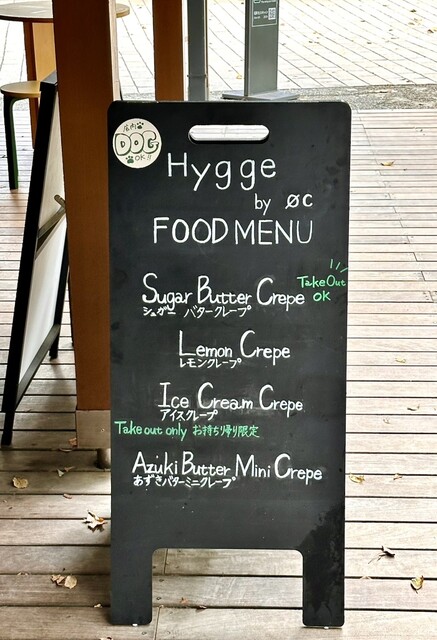 店内
DOG
OK!!
Hygge
by øc
FOOD MENU
Sugar Butter Crepe
Take Out
OK
シュガー バタークレープ
Lemon Crepe
レモンクレープ
Ice Cream Crepe
アイスクレープ
Take out only お持ち帰り限定
Azuki Butter Mini Crepe
あずきバターミニクレープ